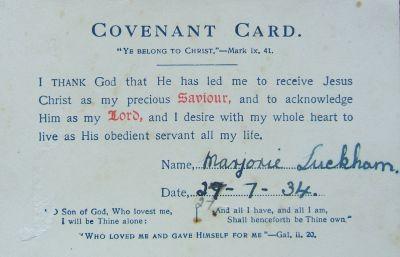 COVENANT CARD.
"YE BELONG TO CHRIST."—Mark ix. 41.
I THANK God that He has led me to receive Jesus
Christ as my precious Saviour, and to acknowledge
Him as my Lord, and I desire with my whole heart to
live as His obedient servant all my life.
Name, Marjorie Luckham.
Date, 27-7-34.
27
O Son of God, Who loved me,
I will be Thine alone:
And all I have, and all I am,
Shall henceforth be Thine own."
"WHO LOVED ME AND GAVE HIMSELF FOR ME"—Gal. ii. 20.